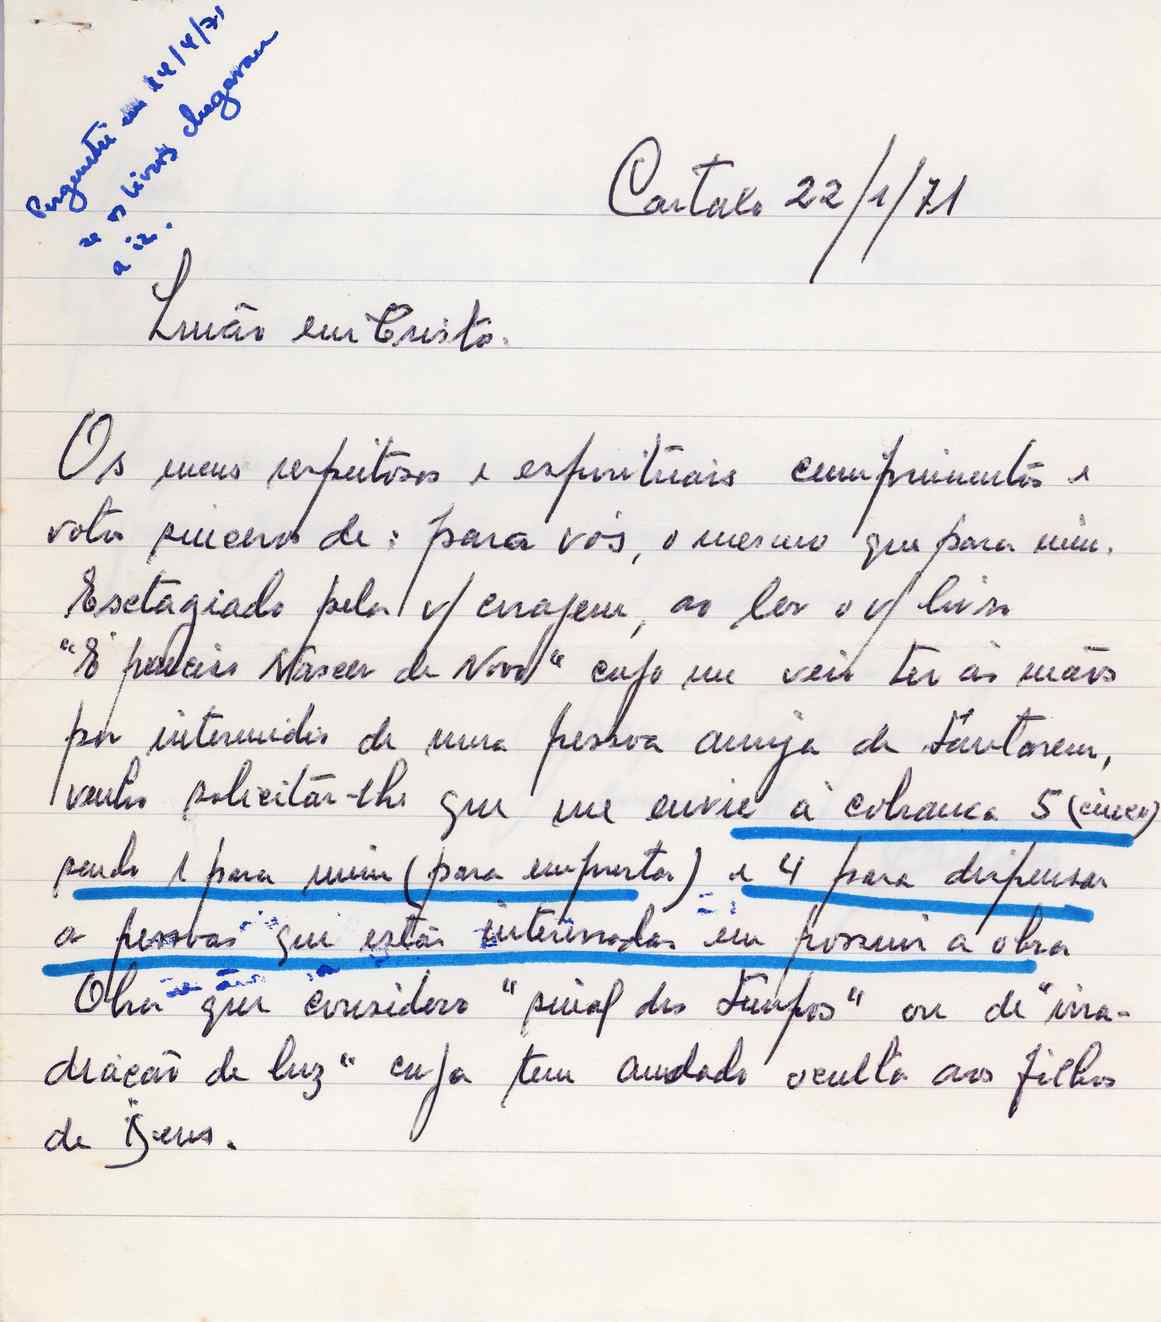 Perguntei em 14/4/71
se os livros chegaram
a ir.
Cartaxo 22/1/71
Irmão em Cristo.
Os meus respeitosos e espirituais cumprimentos e
votos sinceros de: para vós, o mesmo que para mim.
Esctagiado pela v/ coragem, ao ler o v/ livro
"É preciso Nascer de Novo" cujo me veio ter ás mãos
por intermedio de uma pessoa amiga de Santarem,
venho solicitar-lhe que me envie à cobranca 5 (cinco)
sendo 1 para mim (para emprestar) e 4 para dispensar
a pessoas que estão interessadas em possuir a obra
Obra que considero "sinal dos Tempos" ou de "irra-
diação de luz" cuja tem andado oculta aos filhos
de "Deus.